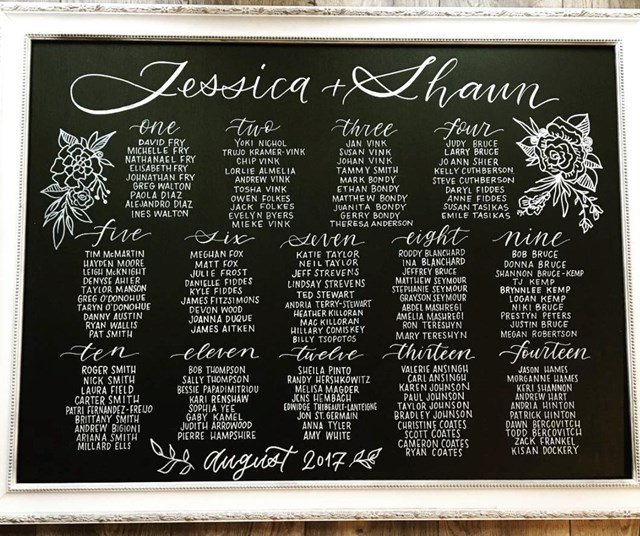 Jessica + Shaun
one
DAVID FRY
MICHELLE FRY
NATHANAEL FRY
ELISABETH FRY
JOHNATHAN FRY
GREG WALTON
PAOLA DIAZ
ALEJANDRO DIAZ
INES WALTON
two
YOKI NICHOL
TRUJO KRAMER-VINK
CHIP VINK
LORLIE ALMELIA
ANDREW VINK
TOSHA VINK
OWEN FOLKES
JACK FOLKES
EVELYN BYERS
MIEKE VINK
three
JAN VINK
SUSAN VINK
JOHAN VINK
TAMMY SMITH
MARK BONDY
ETHAN BONDY
MATTHEW BONDY
JUANITA BONDY
GERRY BONDY
THERESA ANDERSON
four
JUDY BRUCE
LARRY BRUCE
JO ANN SHIER
KELLY CUTHBERSON
STEVE CUTHBERSON
DARYL FIDDES
ANNE FIDDES
SUSAN TASIKAS
EMILE TASIKAS
five
TIM McMARTIN
HAYDEN MOORE
LEIGH McKNIGHT
DENYSE AHIER
TAYLOR MANSON
GREG O'DONOHUE
TARYN O'DONOHUE
DANNY AUSTIN
RYAN WALLIS
PAT SMITH
six
MEGHAN FOX
MATT FOX
JULIE FROST
DANIELLE FIDDES
KYLE FIDDES
JAMES FITZSIMONS
DEVON WOOD
JOANNA DUQUE
JAMES AITKEN
seven
KATIE TAYLOR
NEIL TAYLOR
JEFF STEVENS
LINDSAY STEVENS
TED STEWART
ANDRIA TERRY-STEWART
HEATHER KILLORAN
MAC KILLORAN
HILLARY COMISKEY
BILLY TSOPOTOS
eight
RODDY BLANCHARD
INA BLANCHARD
JEFFREY BRUCE
MATTHEW SEYMOUR
STEPHANIE SEYMOUR
GRAYSON SEYMOUR
ABDEL MASHREGI
AMELIA MASHREGI
RON TERESHYN
MARY TERESHYN
nine
BOB BRUCE
DONNA BRUCE
SHANNON BRUCE-KEMP
TJ KEMP
BRYNNLEE KEMP
LOGAN KEMP
NIKI BRUCE
PRESTYN PETERS
JUSTIN BRUCE
MEGAN ROBERTSON
ten
ROGER SMITH
NICK SMITH
LAURA FIELD
CARTER SMITH
PATRI FERNANDEZ-FREIJO
BRITTANY SMITH
ANDREW BIGIONI
ARIANA SMITH
MILLARD ELLS
eleven
BOB THOMPSON
SALLY THOMPSON
BESSIE PAPADIMITRIOU
KARI RENSHAW
SOPHIA YEE
GABY KAMEL
JUDITH ARROWOOD
PIERRE HAMPSHIRE
twelve
SHEILA PINTO
RANDY HERSHKOWITZ
MELISA MAGDER
JENS HEMBACH
EDWIDGE THIBEAULT-LANTEIGNE
JON ST. GERMAIN
ANNA TYLER
AMY WHITE
thirteen
VALERIE ANSINGH
CARL ANSINGH
KAREN JOHNSON
PAUL JOHNSON
TAYLOR JOHNSON
BRADLEY JOHNSON
CHRISTINE COATES
SCOTT COATES
CAMERON COATES
RYAN COATES
fourteen
JASON HAMES
MORGANNE HAMES
KERI SHANNON
ANDREW HART
ANDRIA HINTON
PATRICK HINTON
DAWN BERCOVITCH
TODD BERCOVITCH
ZACK FRANKEL
KISAN DOCKERY
august 2017